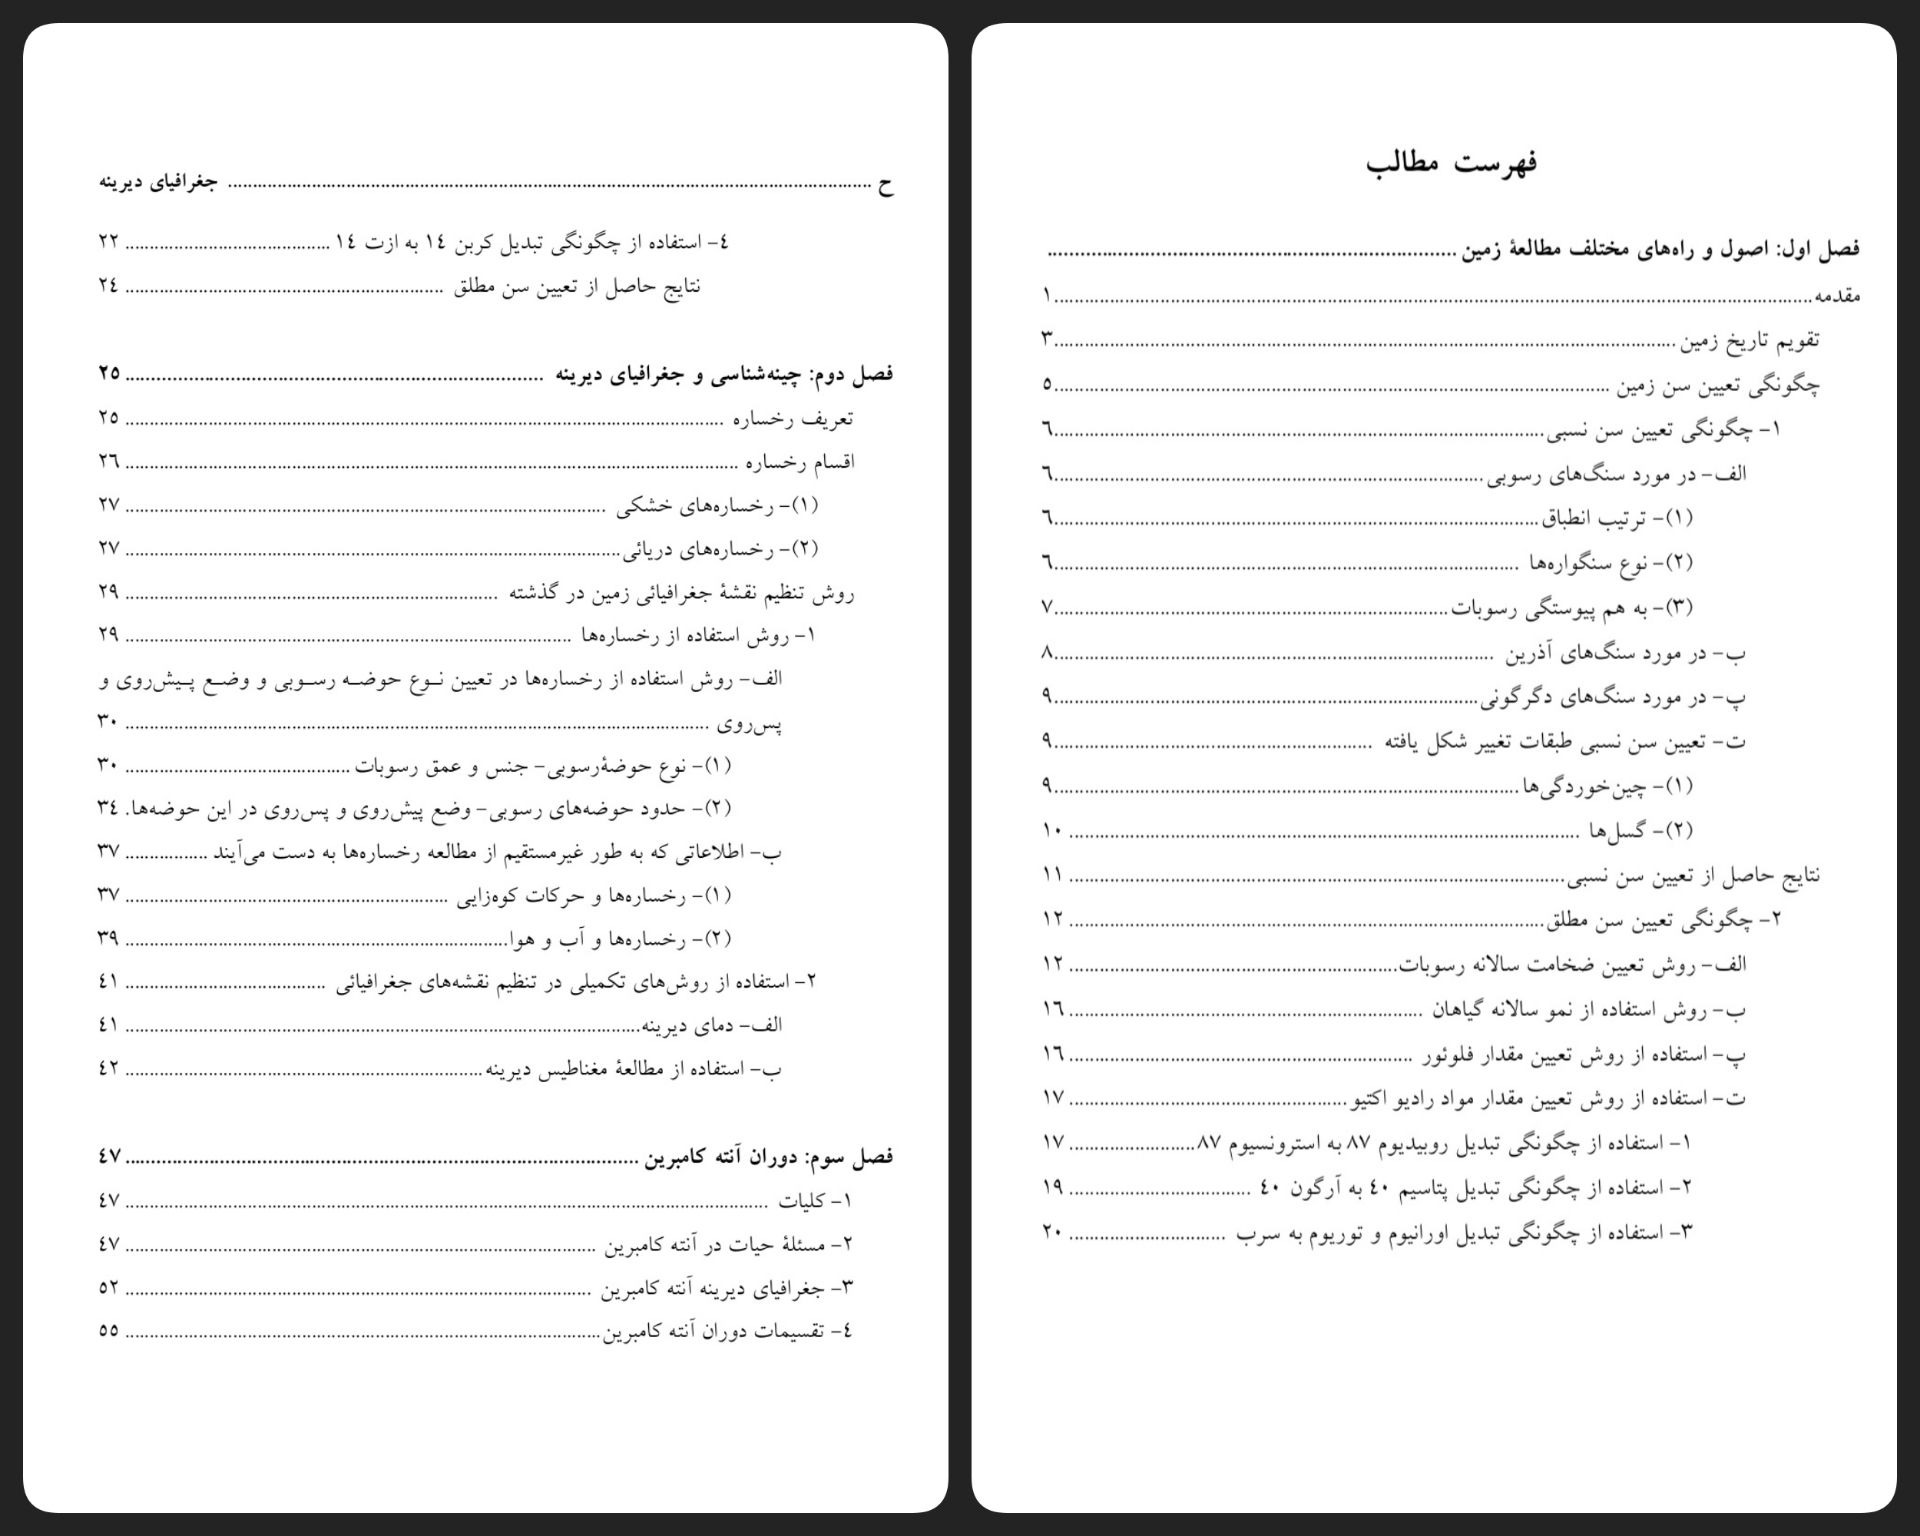 فهرست مطالب
فصل اول: اصول و راه‌های مختلف مطالعهٔ زمین ........................................
مقدمه ........................................ ۱
تقویم تاریخ زمین ........................................ ۳
چگونگی تعیین سن زمین ........................................ ۵
۱- چگونگی تعیین سن نسبی ........................................ ۶
الف- در مورد سنگ‌های رسوبی ........................................ ۶
(۱)- ترتیب انطباق ........................................ ۶
(۲)- نوع سنگواره‌ها ........................................ ۶
(۳)- به هم پیوستگی رسوبات ........................................ ۷
ب- در مورد سنگ‌های آذرین ........................................ ۸
پ- در مورد سنگ‌های دگرگونی ........................................ ۹
ت- تعیین سن نسبی طبقات تغییر شکل یافته ........................................ ۹
(۱)- چین‌خوردگی‌ها ........................................ ۹
(۲)- گسل‌ها ........................................ ۱۰
نتایج حاصل از تعیین سن نسبی ........................................ ۱۱
۲- چگونگی تعیین سن مطلق ........................................ ۱۲
الف- روش تعیین ضخامت سالانه رسوبات ........................................ ۱۲
ب- روش استفاده از نمو سالانه گیاهان ........................................ ۱۶
پ- استفاده از روش تعیین مقدار فلوئور ........................................ ۱۶
ت- استفاده از روش تعیین مقدار مواد رادیو اکتیو ........................................ ۱۷
۱- استفاده از چگونگی تبدیل روبیدیوم ۸۷ به استرونسیوم ۸۷ ........................................ ۱۷
۲- استفاده از چگونگی تبدیل پتاسیم ۴۰ به آرگون ۴۰ ........................................ ۱۹
۳- استفاده از چگونگی تبدیل اورانیوم و توریوم به سرب ........................................ ۲۰
ح ........................................ جغرافیای دیرینه
۴- استفاده از چگونگی تبدیل کربن ۱۴ به ازت ۱۴ ........................................ ۲۲
نتایج حاصل از تعیین سن مطلق ........................................ ۲۴
فصل دوم: چینه‌شناسی و جغرافیای دیرینه ........................................ ۲۵
تعریف رخساره ........................................ ۲۵
اقسام رخساره ........................................ ۲۶
(۱)- رخساره‌های خشکی ........................................ ۲۷
(۲)- رخساره‌های دریائی ........................................ ۲۷
روش تنظیم نقشهٔ جغرافیائی زمین در گذشته ........................................ ۲۹
۱- روش استفاده از رخساره‌ها ........................................ ۲۹
الف- روش استفاده از رخساره‌ها در تعیین نوع حوضه رسوبی و وضع پیش‌روی و
پس‌روی ........................................ ۳۰
(۱)- نوع حوضهٔرسوبی- جنس و عمق رسوبات ........................................ ۳۰
(۲)- حدود حوضه‌های رسوبی- وضع پیش‌روی و پس‌روی در این حوضه‌ها. ۳۴
ب- اطلاعاتی که به طور غیرمستقیم از مطالعه رخساره‌ها به دست می‌آیند ................. ۳۷
(۱)- رخساره‌ها و حرکات کوه‌زایی ........................................ ۳۷
(۲)- رخساره‌ها و آب و هوا ........................................ ۳۹
۲- استفاده از روش‌های تکمیلی در تنظیم نقشه‌های جغرافیائی ........................................ ۴۱
الف- دمای دیرینه ........................................ ۴۱
ب- استفاده از مطالعهٔ مغناطیس دیرینه ........................................ ۴۲
فصل سوم: دوران آنته کامبرین ........................................ ۴۷
۱- کلیات ........................................ ۴۷
۲- مسئلهٔ حیات در آنته کامبرین ........................................ ۴۷
۳- جغرافیای دیرینه آنته کامبرین ........................................ ۵۲
۴- تقسیمات دوران آنته کامبرین ........................................ ۵۵